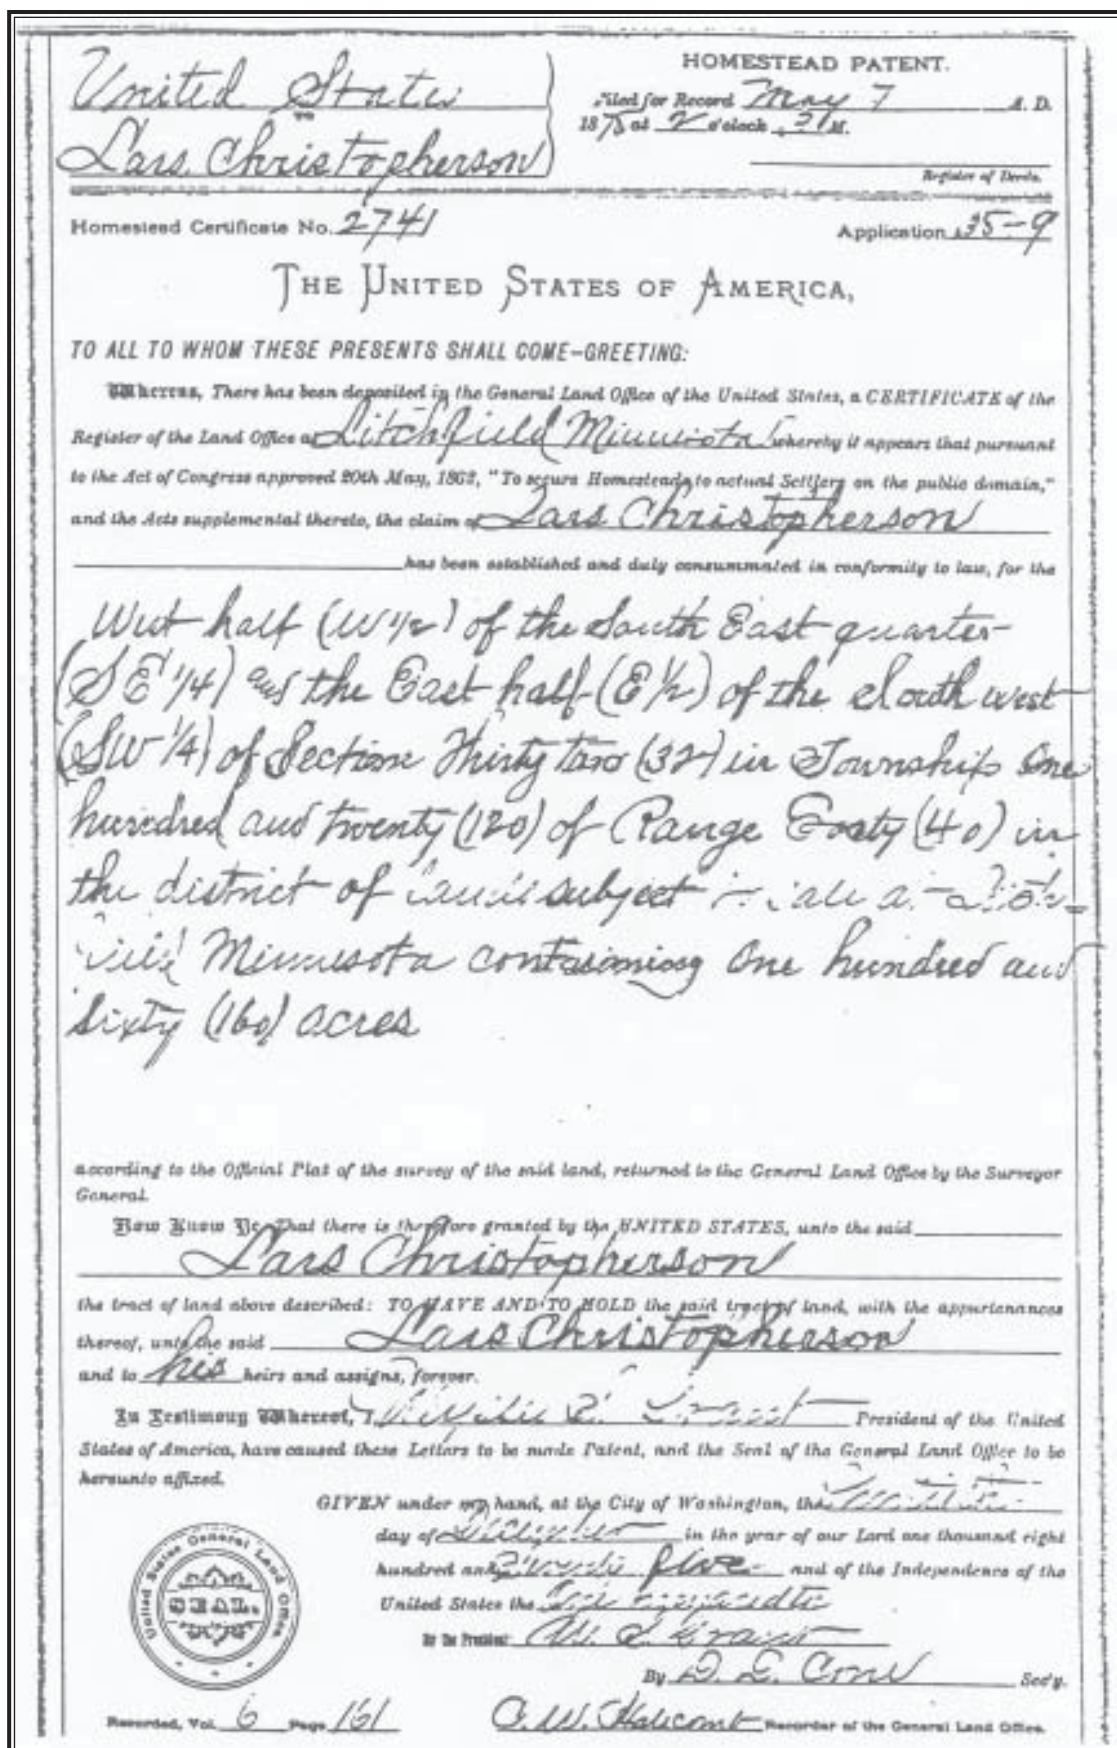 United States
to
Lars Christopherson
HOMESTEAD PATENT.
Filed for Record May 7 A. D.
at 2 o'clock M.
Register of Deeds.
Homestead Certificate No. 2741
Application
THE UNITED STATES OF AMERICA,
TO ALL TO WHOM THESE PRESENTS SHALL COME-GREETING:
Whereas, There has been deposited in the General Land Office of the United States, a CERTIFICATE of the
Register of the Land Office at Litchfield Minnesota whereby it appears that pursuant
to the Act of Congress approved 20th May, 1862, "To secure Homesteads to actual Settlers on the public domain,"
and the Acts supplemental thereto, the claim of Lars Christopherson
has been established and duly consummated in conformity to law, for the
West half (W 1/2) of the South East quarter
(SE 1/4) and the East half (E 1/2) of the South west
(SW 1/4) of Section Thirty two (32) in Township One
hundred and twenty (120) of Range Forty (40) in
the district of subject
Minnesota containing One hundred and
Sixty (160) acres
according to the Official Plat of the survey of the said land, returned to the General Land Office by the Surveyor
General.
Now Know Ye, That there is therefore granted by the UNITED STATES, unto the said
Lars Christopherson
the tract of land above described: TO HAVE AND TO HOLD the said tract of land, with the appurtenances
thereof, unto the said Lars Christopherson
and to his heirs and assigns, forever.
In Testimony Whereof, I, President of the United
States of America, have caused these Letters to be made Patent, and the Seal of the General Land Office to be
hereunto affixed.
GIVEN under my hand, at the City of Washington, the
day of in the year of our Lord one thousand eight
hundred and five and of the Independence of the
United States the
By the President: U. S. Grant
By D. D. Cone Sec'y.
United States General Land Office.
SEAL.
Recorded, Vol. 6 Page 161
Recorder of the General Land Office.